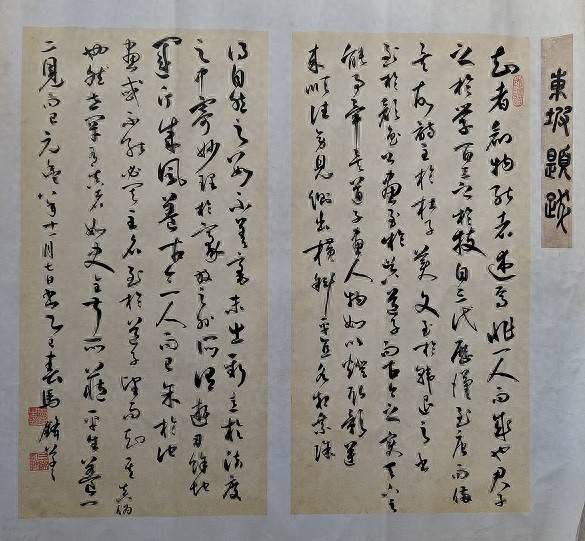 東坡題跋
知者創物能者述焉非一人而成也君子
之於學百工之於技自三代歷漢至唐而備
矣故詩至於杜子美文至於韓退之書
至於顏魯公畫至於吳道子而古今之變天下之
能事畢矣道子畫人物如以燈取影逆
來順往旁見側出橫斜平直各相乘除
得自然之數不差毫末出新意於法度
之中寄妙理於豪放之外所謂遊刃餘地
運斤成風蓋古今一人而已余於他
畫或不能必其主名至於道子望而知其真偽
也然世罕有真者如史全叔所藏平生蓋一
二見而已元豐八年十一月七日書乙巳春馬麟